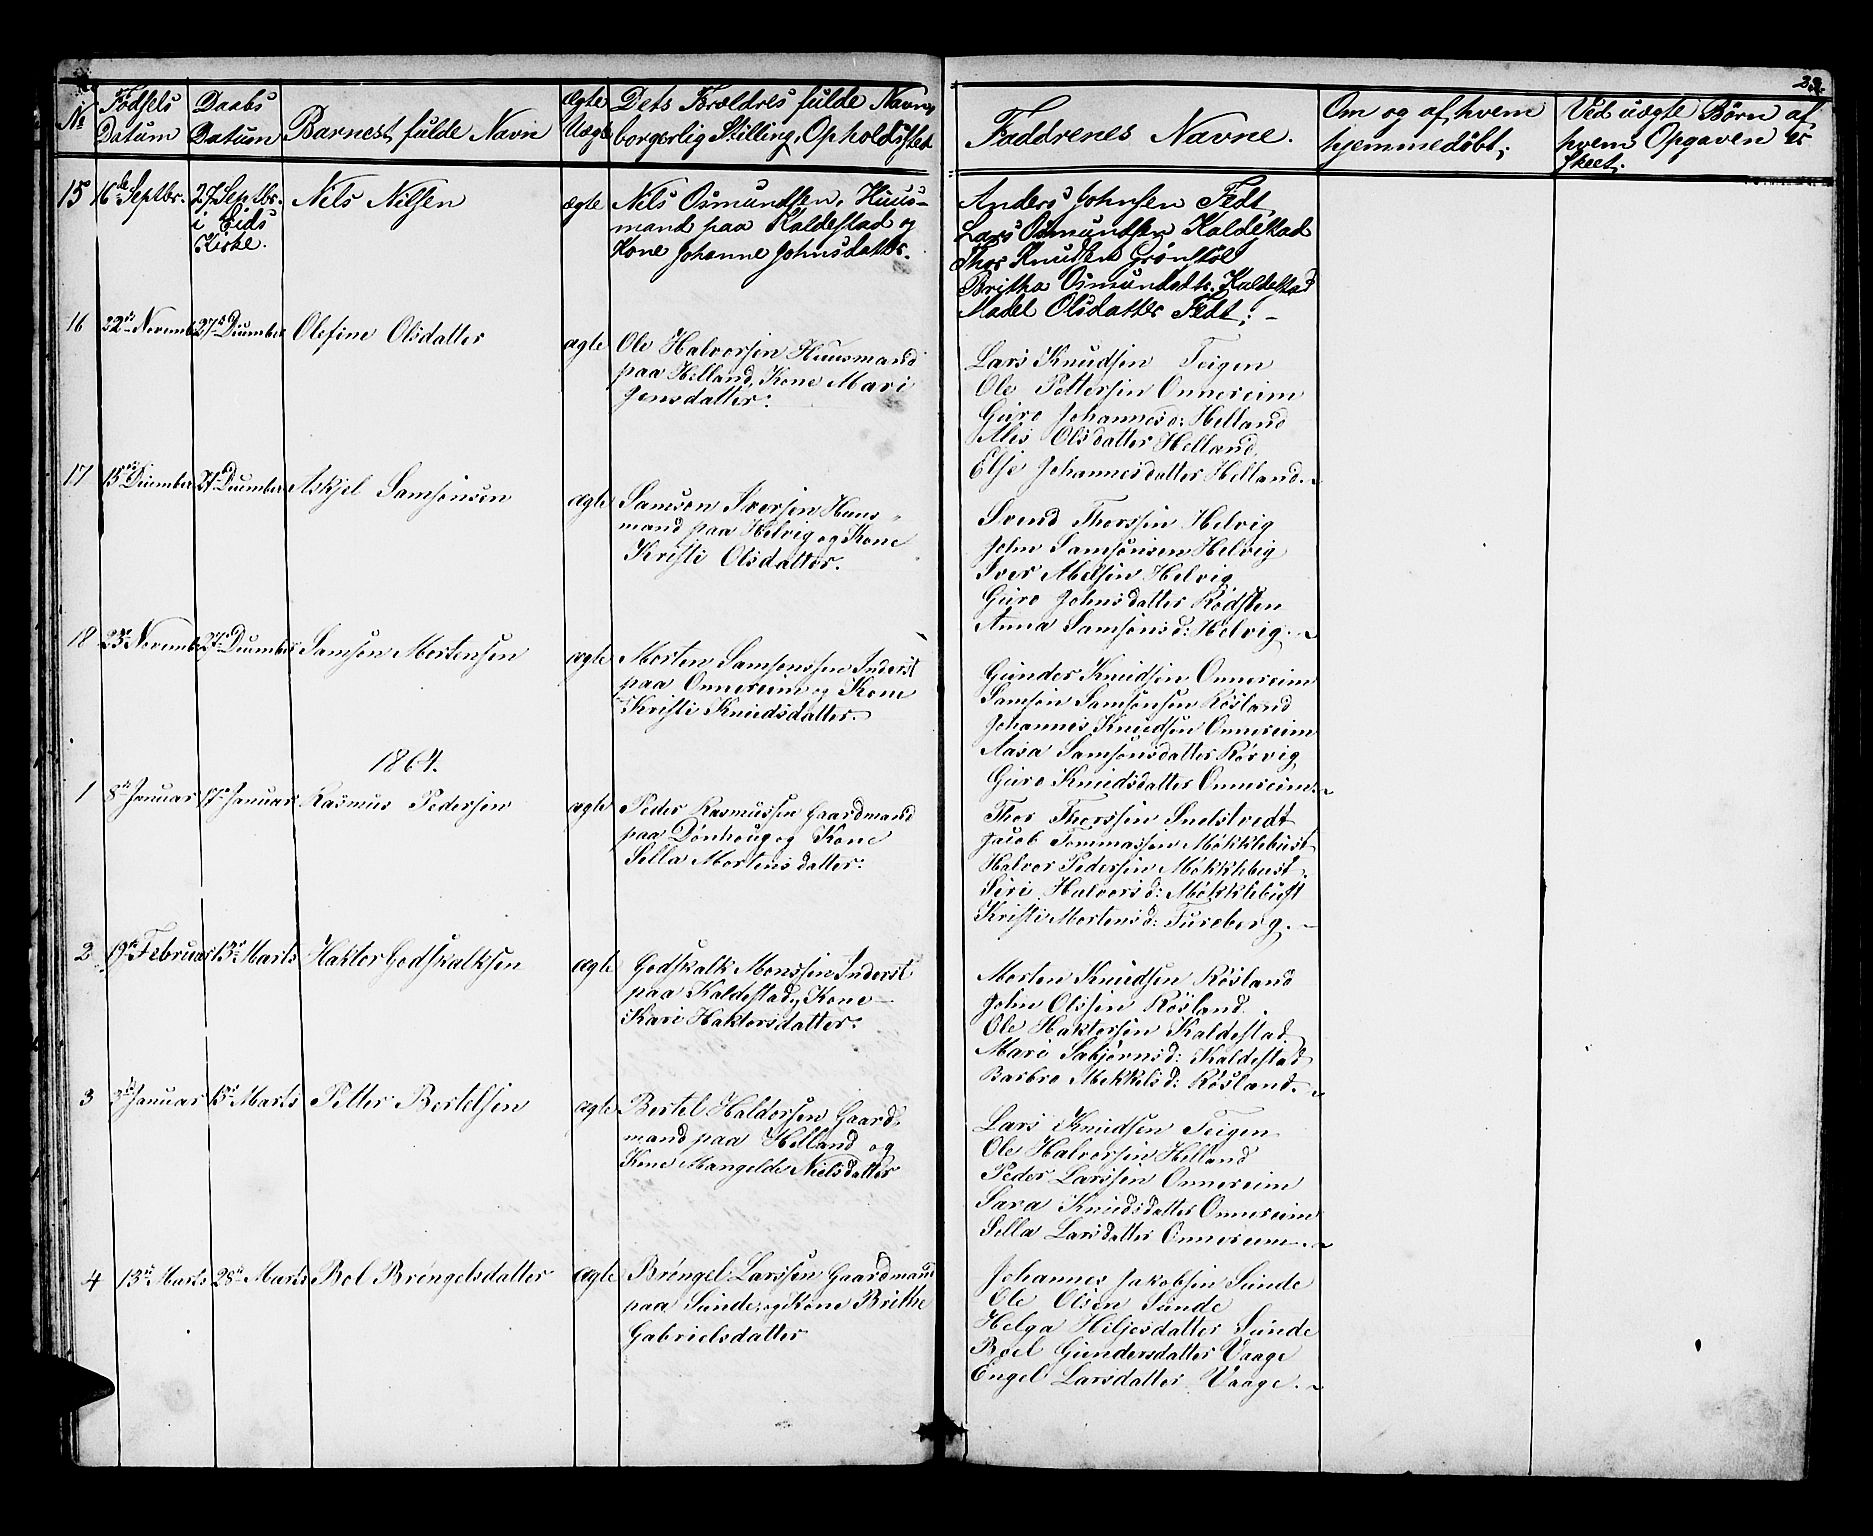 23.
No
Fødsels Datum
Daabs Datum
Barnest fulde Navn
Ægte Uægte
Dets Forældres fulde Navn,
borgerlig Stilling, Opholdssted
Faddrenes Navne.
Om og af hvem
hjemmedøbt.
Ved uægte Børn af
hvem Opgaven er
skeet.
15 16de Septbr. 27 Septbr. i Eids Kirke. Nils Nilsen ægte
Nils Osmundsen, Huus-
mand paa Kaldestad og
Kone Johanne Johnsdatter.
Anders Johnsen Fedt
Lars Osmundsen Kaldestad
Thor Knudsen Grønstøl
Britha Osmundsdtr. Kaldestad
Madel Olsdatter Fedt. –
16 22de November 27de December Olefine Olsdatter ægte
Ole Halvorsen Huusmand
paa Helland, Kone Mari
Jensdatter.
Lars Knudsen Teigen
Ole Pettersen Onnereim
Guro Johannesd: Helland
Alis Olsdatter Helland
Else Johannesdatter Helland. ~
17 15de December 27de December Askjel Samsonsen ægte
Samson Iversen Huus-
mand paa Helvig og Kone
Kristi Olsdatter.
Svend Thorssen Helvig
John Samsonsen Helvig
Iver Melsen Helvig
Guro Johnsdatter Rødsten
Anna Samsonsd: Helvig. ~
18 23de November 27de December Samson Mortensen ægte
Morten Samsonssen Inderst
paa Onnereim og Kone
Kristi Knudsdatter.
Gunder Knudsen Onnereim
Samson Samsonsen Røsland
Johannes Knudsen Onnereim
Aasa Samsonsdatter Rørvig
Guro Knudsdatter Onnereim. ~
1864.
1 8de Januar 17de Januar Rasmus Pedersen ægte
Peder Rasmussen Gaardmand
paa Dønhoug og Kone
Silla Mortensdatter.
Thor Thorssen Snelstvedt
Jacob Tommassen Møkklebust
Halvor Pedersen Møkklebust
Siri Halvorsd: Møkklebust
Kristi Mortensd: Fureberg. –
2 19de Februar 13de Marts Haktor Godskalksen ægte
Godskalk Monssen Inderst
paa Kaldestad, Kone
Kari Haktorsdatter.
Morten Knudsen Røsland
John Olssen Røsland.
Ole Haktorsen Kaldestad.
Mari Sabjørnsd: Kaldestad
Barbro Mekkelsd: Røsland. ~
3 3de Januar 13de Marts Petter Bertelsen ægte
Bertel Haldorsen Gaard-
mand paa Helland og
Kone Mangelde Nielsdatter
Lars Knudsen Teigen
Ole Halvorsen Helland
Peder Larssen Onnereim
Sara Knudsdatter Onnereim
Silla Larsdatter Onnereim. ~
4 13de Marts 28de Marts Bol Brengelsdatter ægte
Brengel Larssen Gaardmand
paa Sunde, og Kone Brithe
Gabrielsdatter
Johannes Jakobsen Sunde
Ole Olsen Sunde
Helga Hiljesdatter Sunde
Boel Gundersdatter Vaage
Engel Larsdatter Vaage. ~